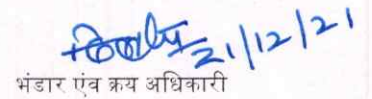 21/12/21
भंडार एंव क्रय अधिकारी